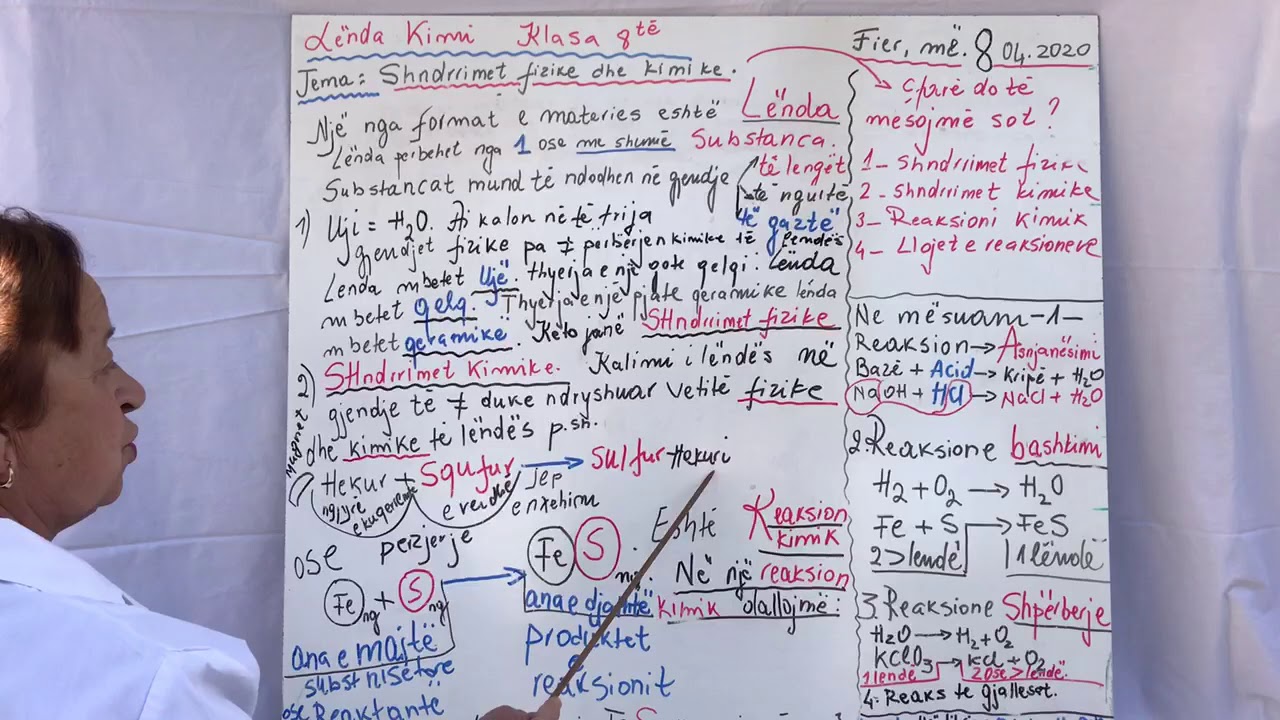 Lënda Kimi Klasa 8të
Fier, më. 8 04.2020
Tema: Shndrrimet fizike dhe kimike.
Një nga format e materies eshtë Lënda
Lënda përbehet nga 1 ose me shumë Substanca.
Substancat mund të ndodhen në gjendje
të lengët
të ngurtë
të gaztë
1) Uji = H2O. Ai kalon në të trija
gjendjet fizike pa ≠ përbërjen kimike të lendës
Lënda mbetet Ujë. Thyerja e një gote qelqi. Lënda
mbetet qelq. Thyerja e një pjate qeramike lënda
mbetet qeramikë. Këto janë SHndrrimet fizike
2) SHndrrimet Kimike. Kalimi i lëndës në
gjendje të ≠ duke ndryshuar vetitë fizike
dhe kimike të lëndës p.sh.
Magnet
Hekur + Squfur → Sulfur Hekuri
ngjyrë
e verdhë
Jep
ose përzjerje
Fe + S → FeS. Eshtë Reaksion
kimik
ng
ng
ng. Në një reaksion
kimik dallojmë:
ana e majtë
substnisëtore
ose Reaktantë
ana e djathtë
produktet
e
reaksionit
Çfarë do të
mësojmë sot?
1- Shndrrimet fizike
2- Shndrrimet kimike
3- Reaksioni Kimik
4- Llojet e reaksioneve
Ne mësuam -1-
Reaksion → Asnjanësimi
Bazë + Acid → Kripë + H2O
NaOH + HCl → NaCl + H2O
2. Reaksione bashkimi
H2 + O2 → H2O
Fe + S → FeS
2 > lendë 1 lëndë
3. Reaksione Shpërberje
H2O → H2 + O2
KClO3 → KCl + O2
1 lendë 2 ose > lendë.
4. Reaks te gjalleset.